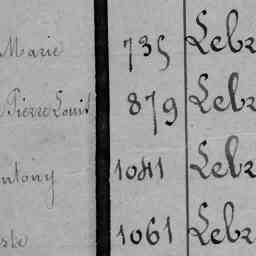 Marie 735 Lebr
Pierre Louis 879 Lebr
ntony 1041 Lebr
ste 1061 Lebr